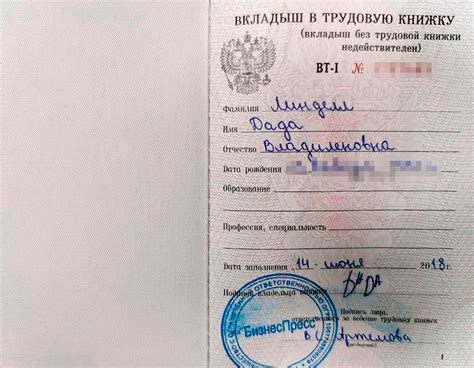 ВКЛАДЫШ В ТРУДОВУЮ КНИЖКУ
(вкладыш без трудовой книжки
недействителен)
ВТ-I №
Фамилия Линделл
Имя Дада
Отчество Владиленовна
Дата рождения
Образование
Профессия, специальность
Дата заполнения 14 июня 2018 г.
Подпись владельца книжки
Подпись лица,
ответственного за ведение трудовых книжек
В С Артемова
(разборчиво)
БизнесПресс
1